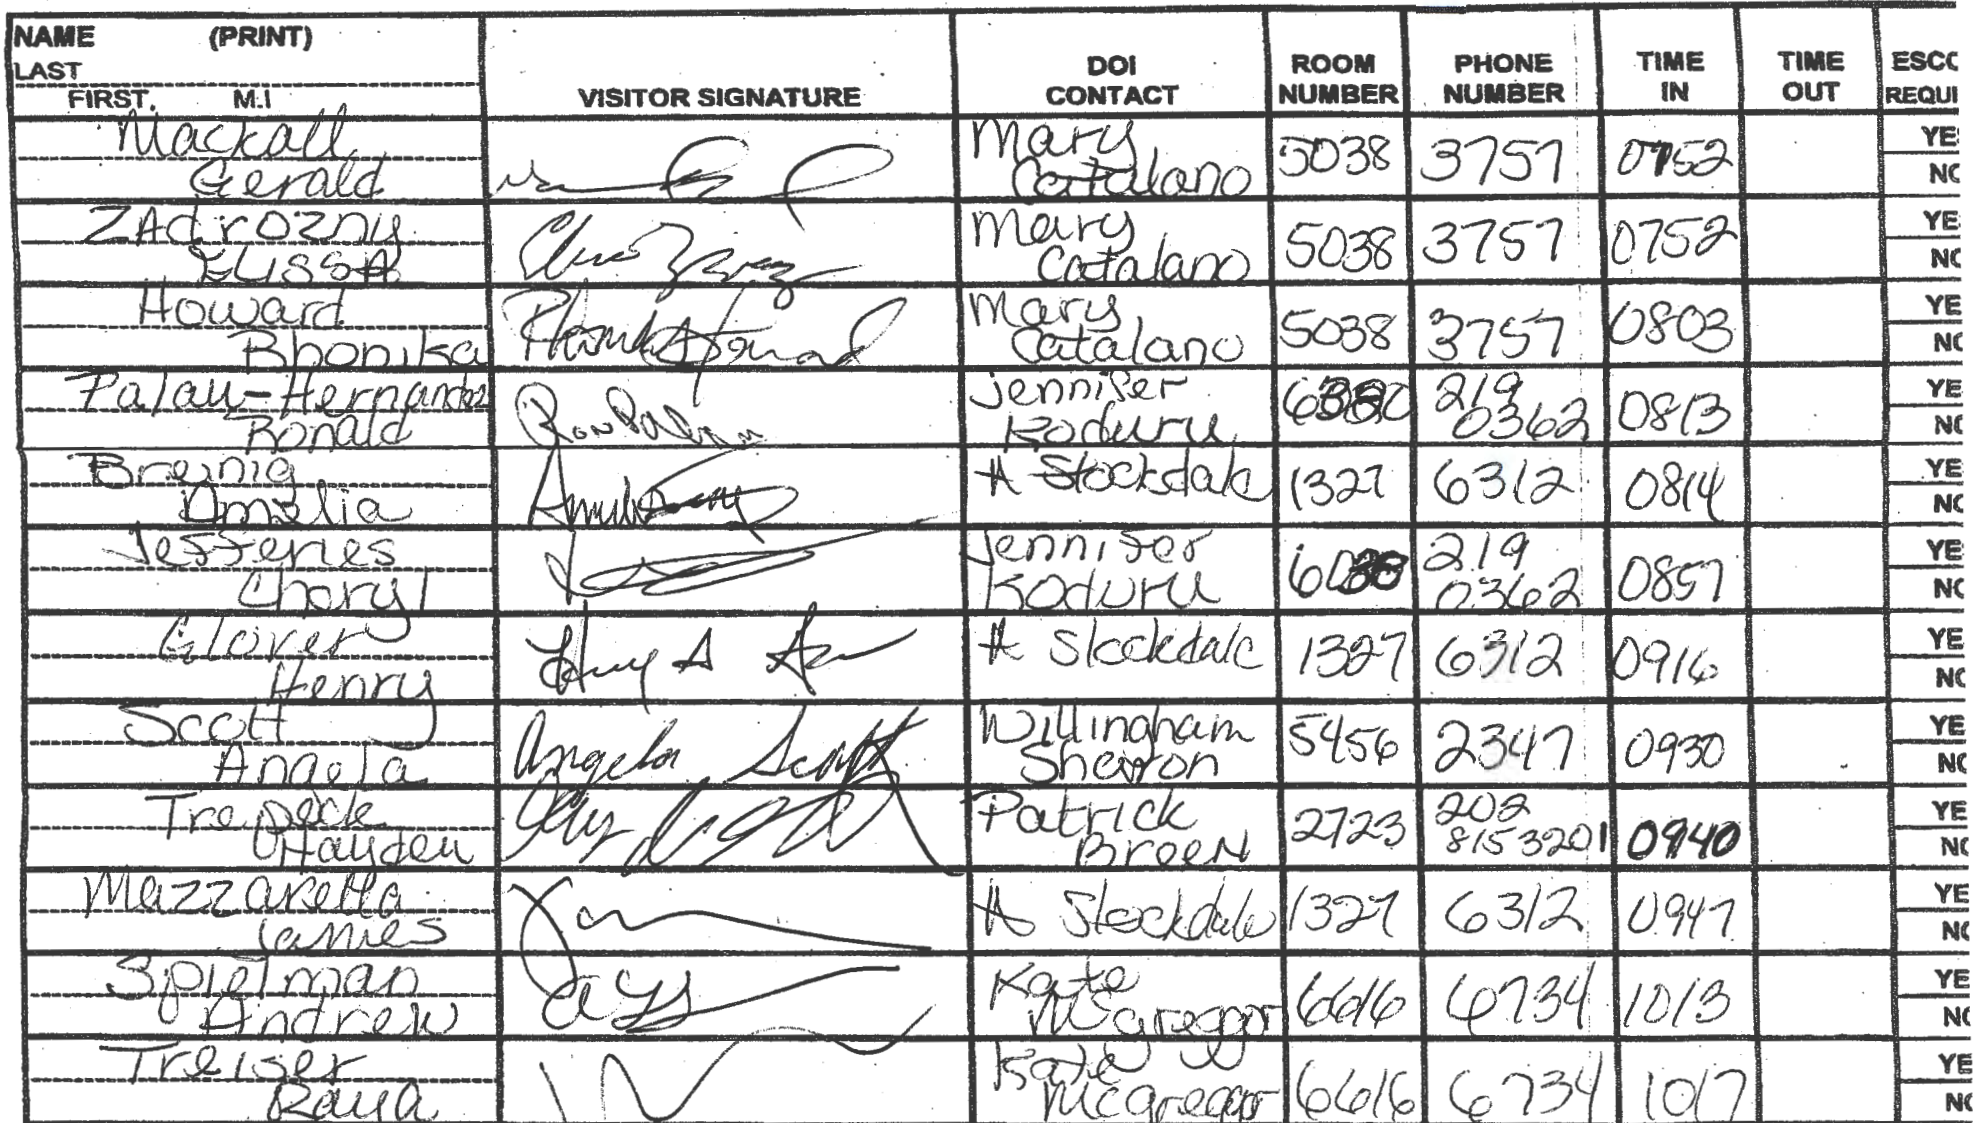 NAME (PRINT)
LAST
FIRST, M.I
VISITOR SIGNATURE
DOI CONTACT
ROOM NUMBER
PHONE NUMBER
TIME IN
TIME OUT
ESCC
REQUI
Mackall Gerald Mary Catalano 5038 3757 0752 YE NO
Zadrozny Elissa Mary Catalano 5038 3757 0752 YE NO
Howard Bhonika Mary Catalano 5038 3757 0803 YE NO
Palau-Hernandez Ronald Jennifer Koduru 219 0362 0813 YE NO
Breinig Amelia A Stockdale 1327 6312 0814 YE NO
Jefferies Cheryl Jennifer Koduru 219 0362 0857 YE NO
Glover Henry A Stockdale 1327 6312 0916 YE NO
Scott Angela Angela Scott Willingham Sharon 5456 2347 0930 YE NO
Trepeck Hayden Patrick Breen 2723 202 8153201 0940 YE NO
Mazzarella James A Stockdale 1327 6312 0947 YE NO
Spielman Andrew Kate McGreggor 6616 6734 1013 YE NO
Treiser Raya Kate McGreggor 6616 6734 1017 YE NO